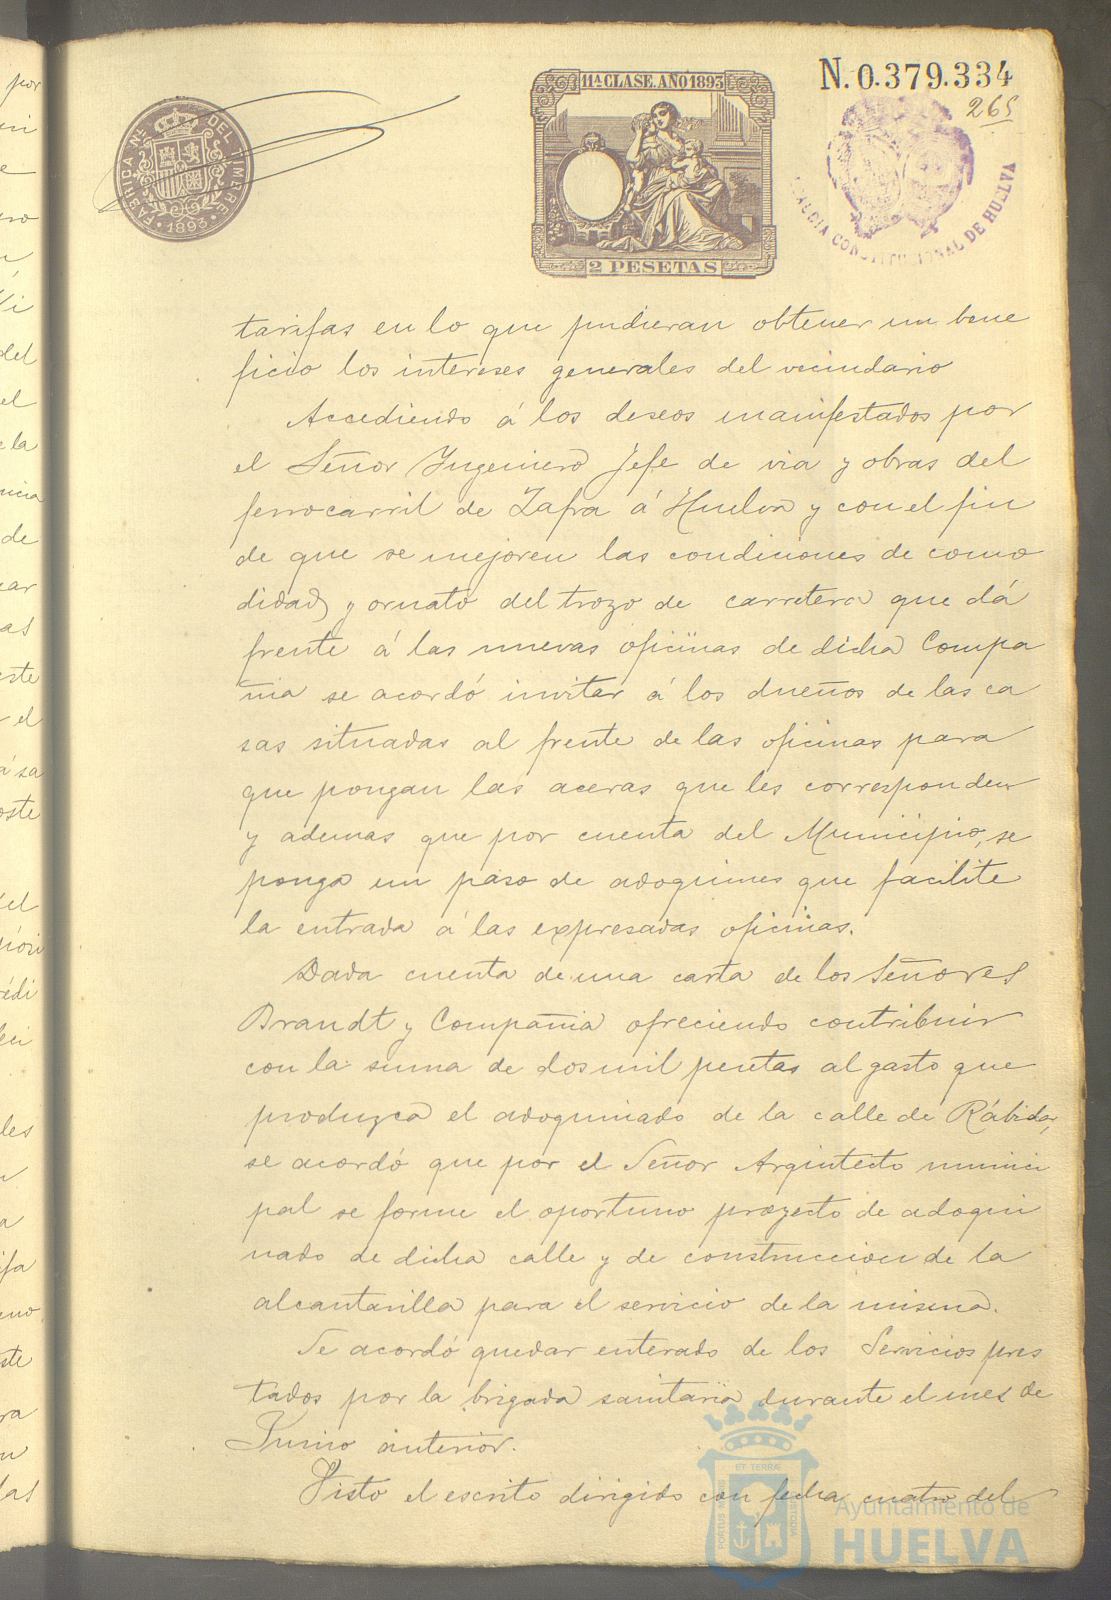 11ª CLASE. AÑO 1893
2 PESETAS
FABRICA Nal. DEL TIMBRE
1893
N.0.379.334
265
ALCALDIA CONSTITUCIONAL DE HUELVA
tarifas en lo que pudieran obtener un bene
ficio los intereses generales del vecindario
Accediendo á los deseos manifestados por
el Señor Ingeniero Jefe de via y obras del
ferrocarril de Zafra á Huelva y con el fin
de que se mejoren las condiciones de como
didad y ornato del trozo de carretera que dá
frente á las nuevas oficinas de dicha Compa
ñia se acordó invitar á los dueños de las ca
sas situadas al frente de las oficinas para
que pongan las aceras que les corresponden
y ademas que por cuenta del Municipio, se
ponga un paso de adoquines que facilite
la entrada á las expresadas oficinas.
Dada cuenta de una carta de los Señores
Brandt y Compañia ofreciendo contribuir
con la suma de dos mil pesetas al gasto que
produzca el adoquinado de la calle de Rábida,
se acordó que por el Señor Arquitecto munici
pal se forme el oportuno proyecto de adoqui
nado de dicha calle y de construccion de la
alcantarilla para el servicio de la misma.
Se acordó quedar enterado de los Servicios pres
tados por la brigada sanitaria durante el mes de
Junio anterior.
Visto el escrito dirigido con fecha cuatro del
PORTUS MARIS
ET TERRÆ
CUSTODIA
Ayuntamiento de
HUELVA